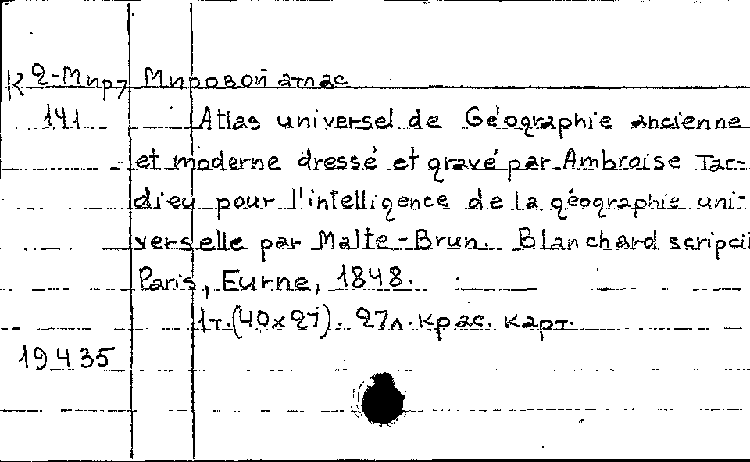 К 2-Мир7 Мировой атлас
141 Atlas universel de Géographie ancienne
et moderne dressé et gravé par Ambroise Tar-
dieu pour l'intelligence de la géographie uni-
verselle par Malte-Brun. Blanchard scripcit
Paris, Eurne, 1848.
1т.(40x27). 27л. крас. карт.
19435